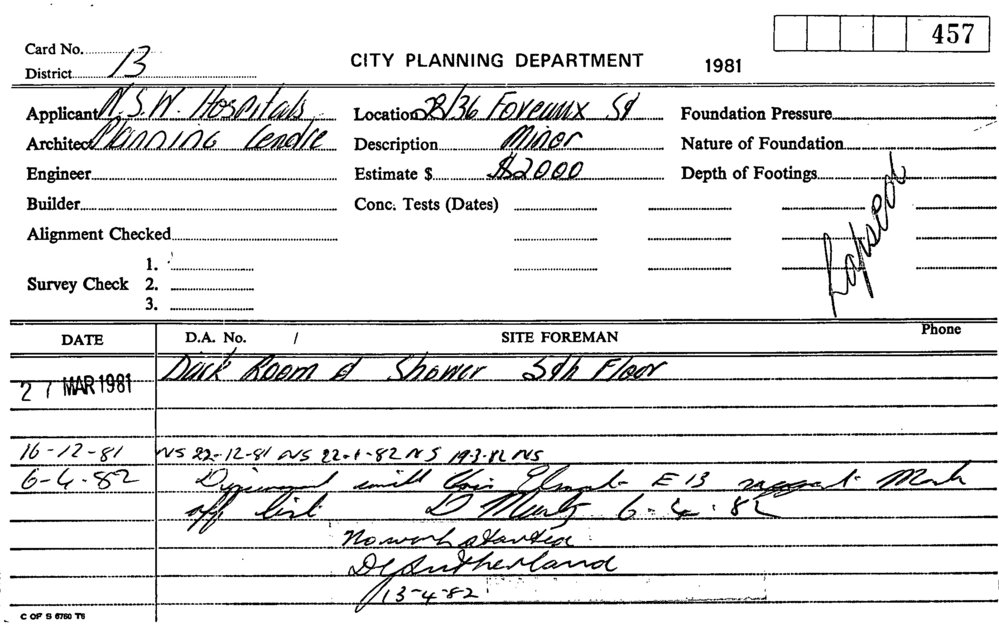 457
Card No.
District 13
CITY PLANNING DEPARTMENT 1981
Applicant N.S.W. Hospitals Location 28/36 Foveaux St Foundation Pressure
Architect Planning Centre Description Minor Nature of Foundation
Engineer Estimate $ $2000 Depth of Footings
Builder Conc. Tests (Dates)
Lapsed
Alignment Checked
1.
Survey Check 2.
3.
DATE D.A. No. / SITE FOREMAN Phone
27 MAR 1981 Dark Room & Shower 5th Floor
16-12-81 NS 22-12-81 NS 22-1-82 NS 19-3-82 NS
6-4-82 E 13 suggest Mark
off list D 6-4-82
No work started
D Sutherland
13-4-82
C OF S 6760 TS